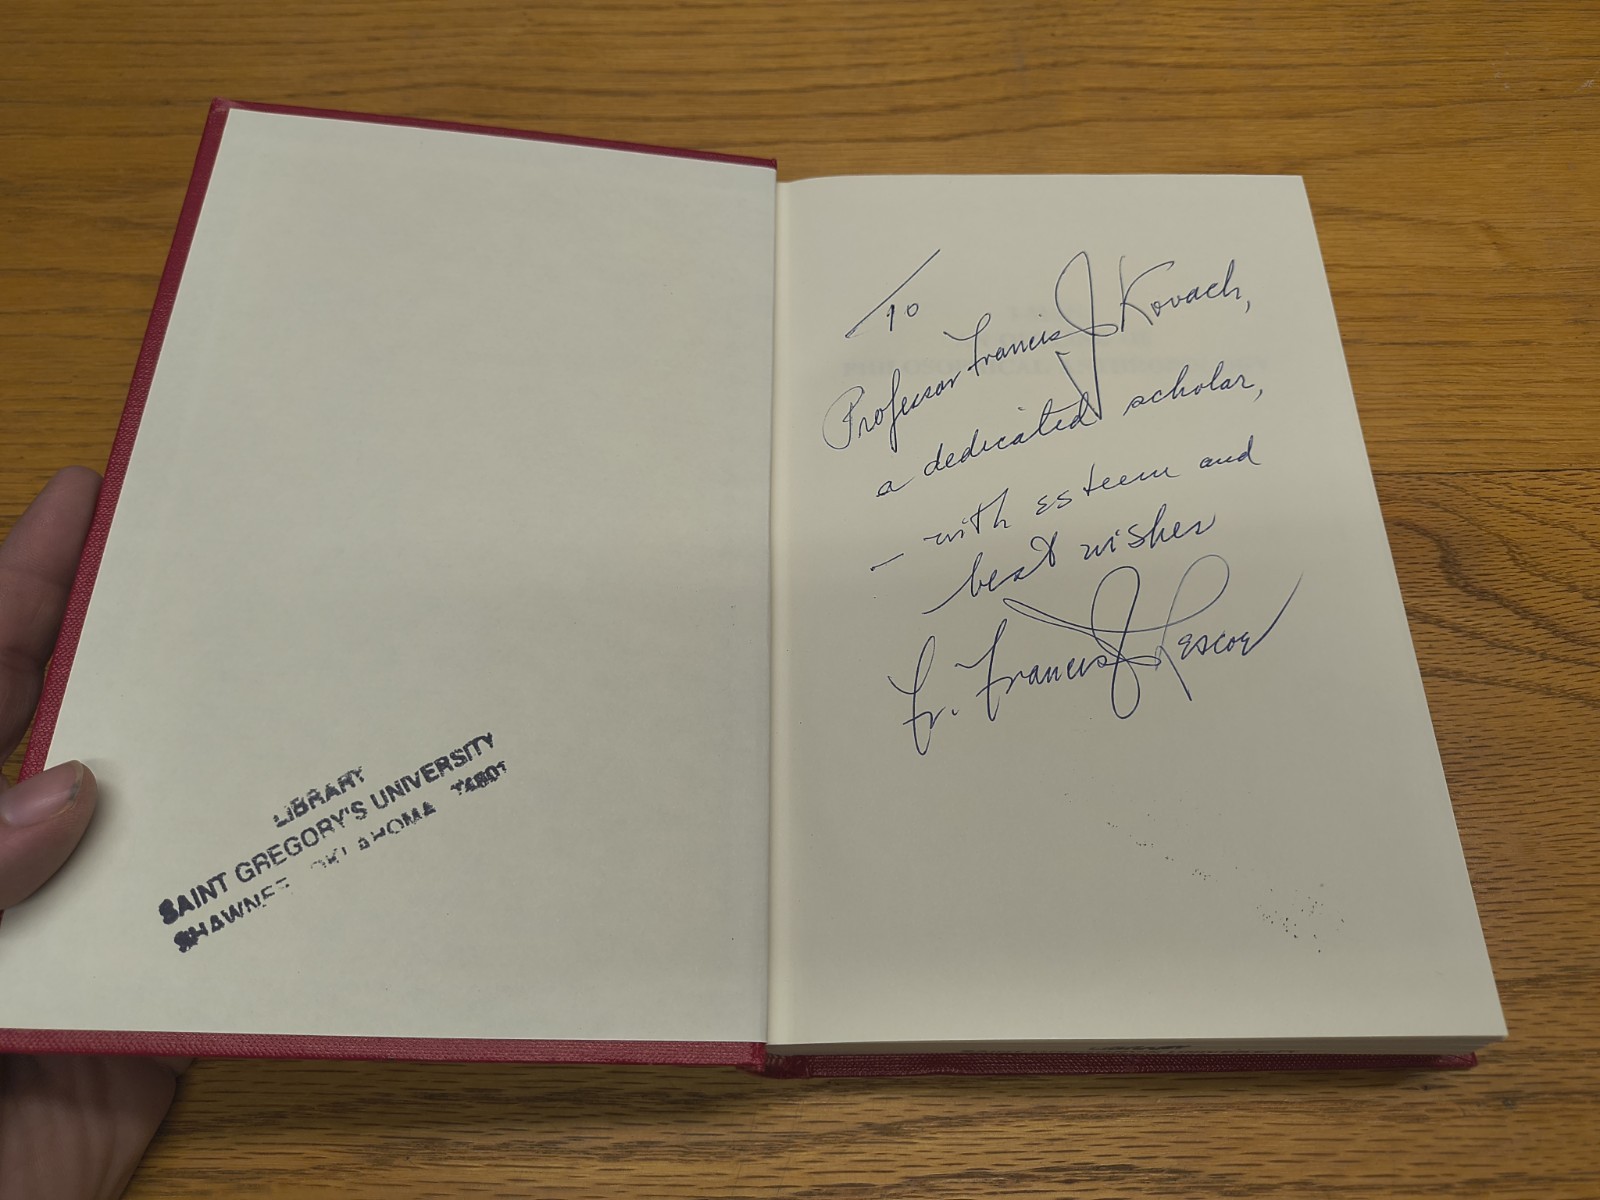 LIBRARY
SAINT GREGORY'S UNIVERSITY
SHAWNEE OKLAHOMA 74801
To
Professor Francis J Kovach,
a dedicated scholar,
– with esteem and
best wishes
Fr. Francis J Lescoe